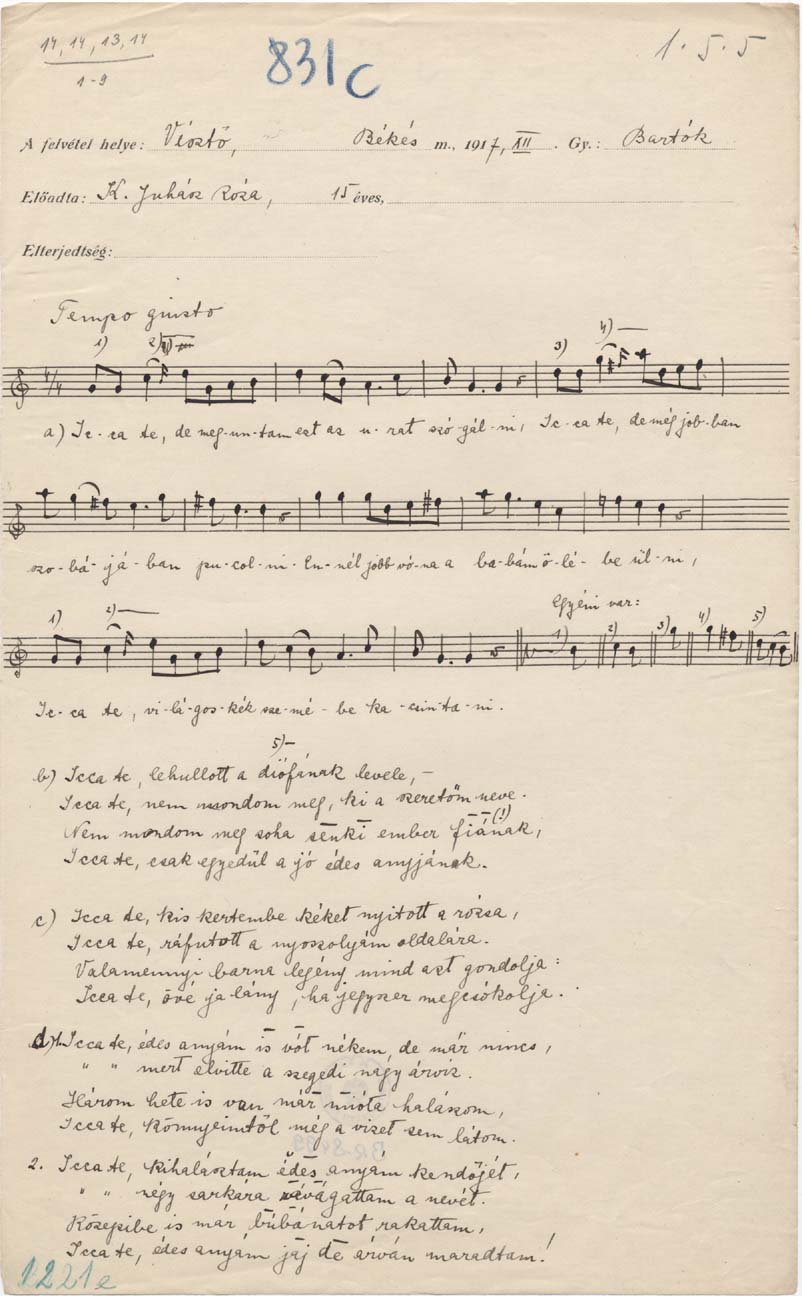 14, 14, 13, 14
1-9
831c
1. 5. 5
A felvétel helye: Vésztő, Békés m., 1917, XII. Gy.: Bartók
Előadta: K. Juhász Róza, 15 éves,
Elterjedtség:
Tempo giusto
1) 2) 3) 4)
4/4
a) Ic-ca te, de meg-un-tam ezt az u-rat szó-gál-ni, Ic-ca te, de még job-ban
szo-bá-já-ban pu-col-ni. En-nél jobb vó-na a ba-bám ö-lé-be ül-ni,
Egyéni var:
1) 2) 1) 2) 3) 4) 5)
Ic-ca te, vi-lá-gos-kék sze-mé-be ka-csin-ta-ni.
5)
b) Icca te, lehullott a diófának levele,
Icca te, nem mondom meg, ki a szeretőm neve.
(!)
Nem mondom meg soha senki ember fiának,
Icca te, csak egyedül a jó édes anyjának.
c) Icca te, kis kertembe kéket nyitott a rózsa,
Icca te, ráfutott a nyoszolyám oldalára.
Valamennyi barna legény mind azt gondolja:
Icca te, övé ja lány, ha jegyszer megcsókolja.
d) 1. Icca te, édes anyám is vót nékem, de már nincs,
" " mert elvitte a szegedi nagy árvíz.
Három hete is van már mióta halászom,
Icca te, könnyeimtől még a vizet sem látom.
2. Icca te, kihalásztam édes anyám kendőjét,
" " négy sarkára rávágattam a nevét.
Közepibe is már búbánatot rakattam,
Icca te, édes anyám jaj de árván maradtam!
1221e